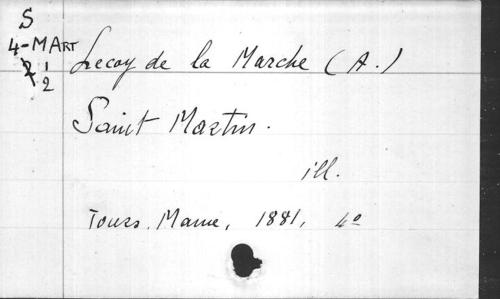 S
4-MART
2 1/2
Lecoy de la Marche (A.)
Saint Martin.
ill.
Tours, Mame, 1881, 4º